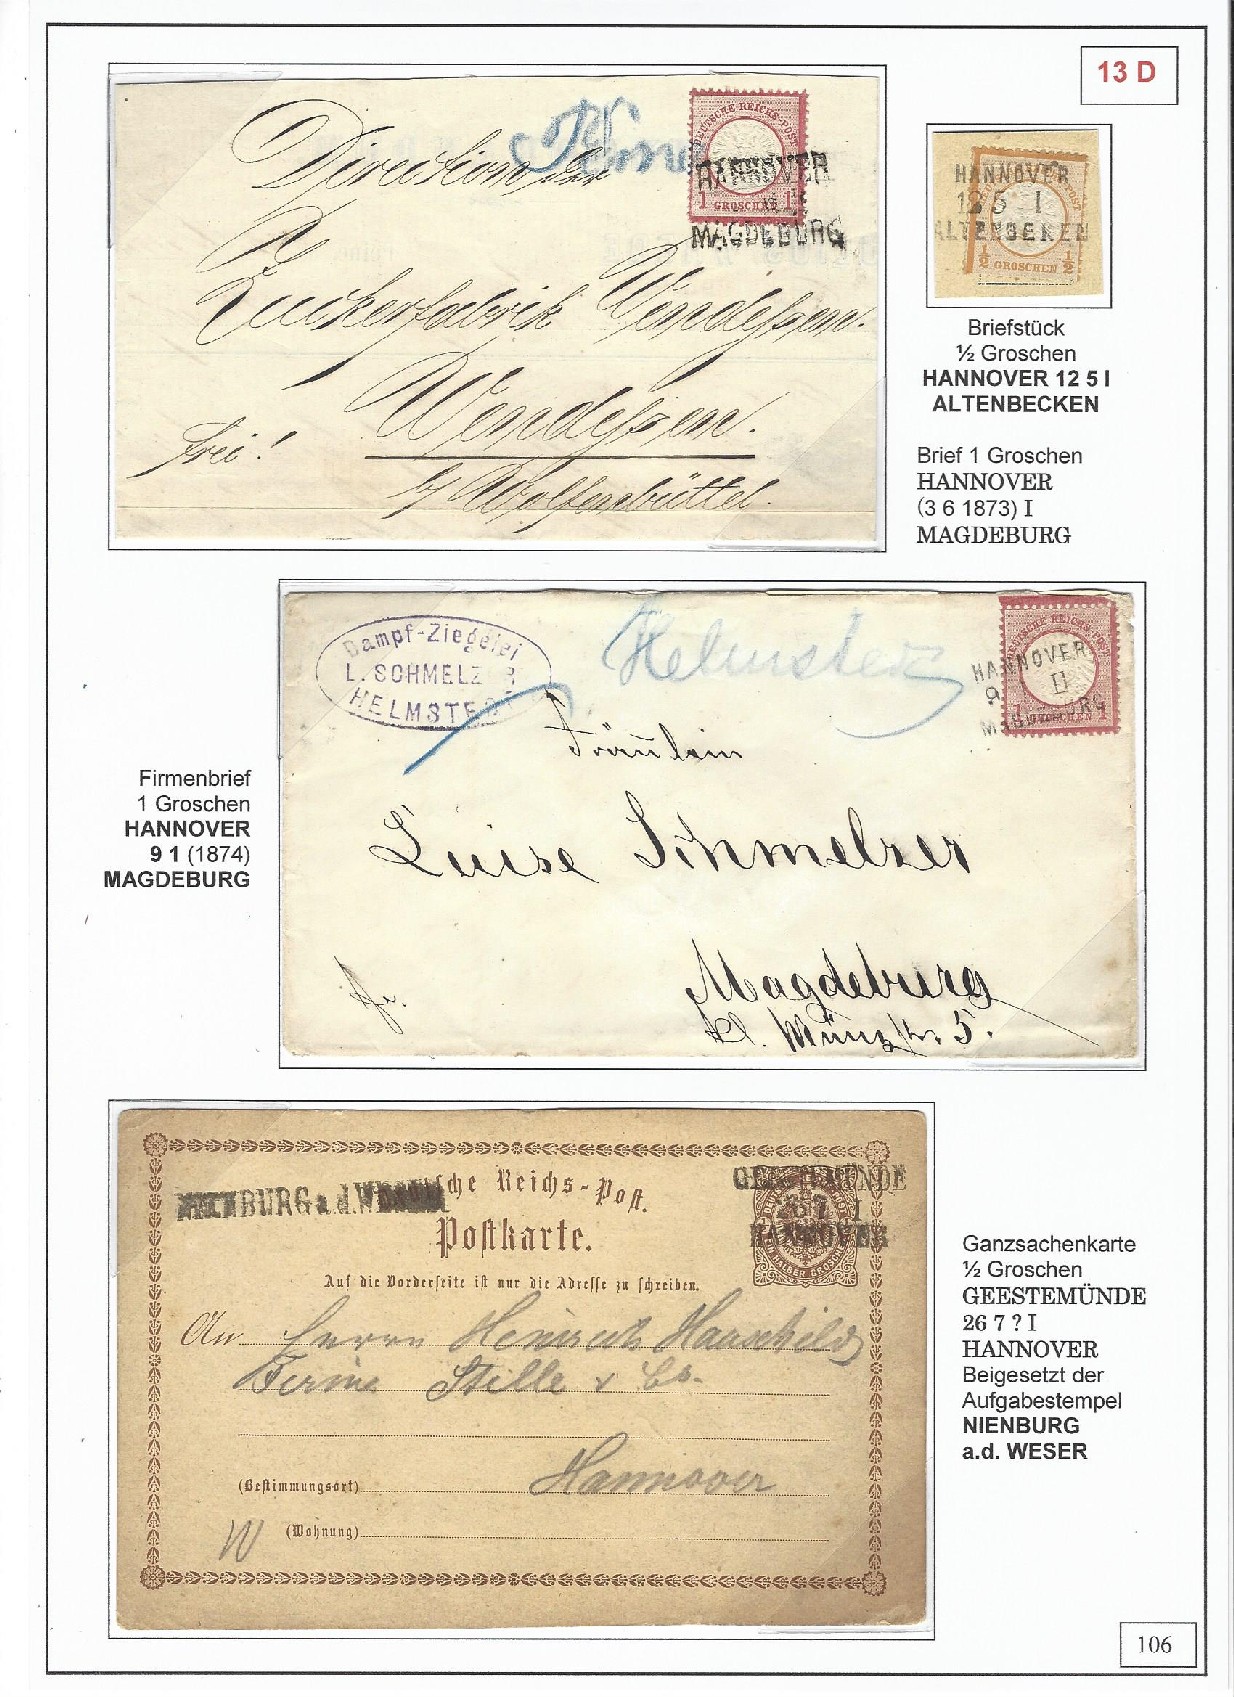 13 D
Direction der
Zuckerfabrik Wendessen.
Wendessen.
frei!
b/ Wolfenbüttel.
DEUTSCHE REICHS-POST
1 GROSCHEN 1
HANNOVER
MAGDEBURG
HANNOVER
12 5 I
ALTENBEKEN
½ GROSCHEN ½
Briefstück
½ Groschen
HANNOVER 12 5 I
ALTENBECKEN
Brief 1 Groschen
HANNOVER
(3 6 1873) I
MAGDEBURG
Dampf-Ziegelei
L. SCHMELZER
HELMSTEDT
Helmstedt
HANNOVER
9 II
MAGDEBURG
Fräulein
Luise Schmelzer
Magdeburg
kl. Münzstr. 5.
fr.
Firmenbrief
1 Groschen
HANNOVER
9 1 (1874)
MAGDEBURG
NIENBURG a.d. WESER
Deutsche Reichs-Post.
Postkarte.
GEESTEMÜNDE
26 7 I
HANNOVER
Auf die Vorderseite ist nur die Adresse zu schreiben.
An Herrn Heinrich Hauschild
Firma Stille & Co.
Hannover
(Bestimmungsort)
(Wohnung)
Ganzsachenkarte
½ Groschen
GEESTEMÜNDE
26 7 ? I
HANNOVER
Beigesetzt der
Aufgabestempel
NIENBURG
a.d. WESER
106